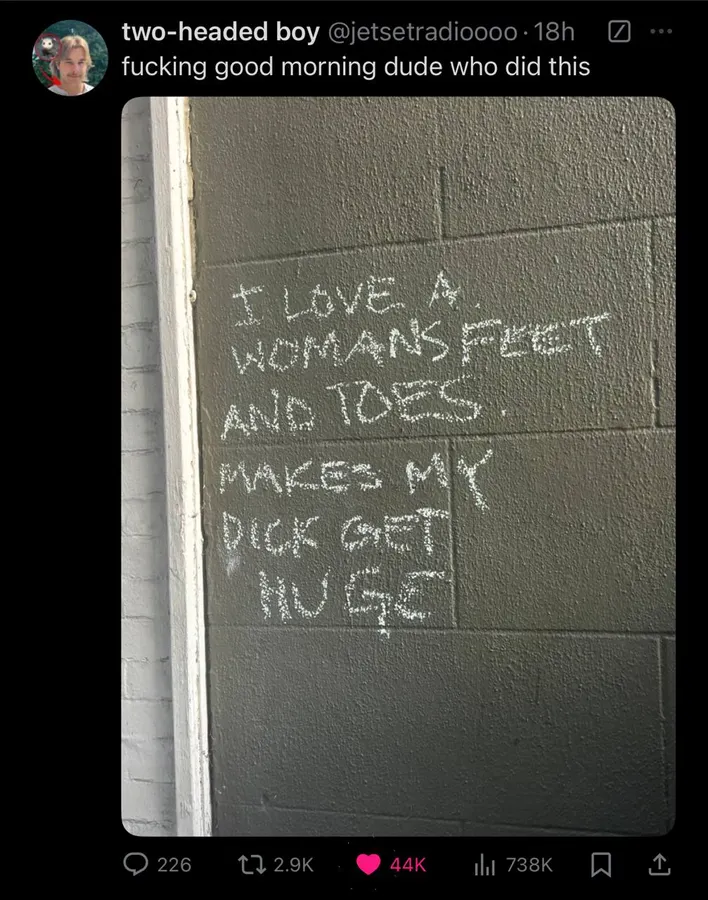 two-headed boy @jetsetradioooo · 18h
fucking good morning dude who did this
I LOVE A.
WOMANS FEET
AND TOES.
MAKES MY
DICK GET
HUGE
226 2.9K 44K 738K